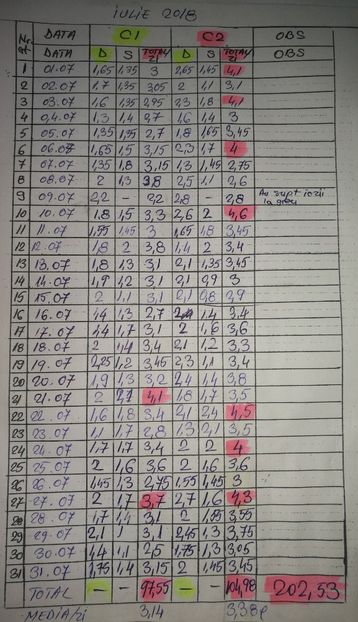 IULIE 2018
Nr. crt. DATA C1 C2 OBS
DATA D S TOTAL ZI D S TOTAL ZI OBS
1 01.07 1,65 1,35 3 2,65 1,45 4,1
2 02.07 1,7 1,35 305 2 1,1 3,1
3 03.07 1,6 1,35 2,95 2,3 1,8 4,1
4 04.07 1,3 1,4 2,7 1,6 1,4 3
5 05.07 1,35 1,35 2,7 1,8 165 3,45
6 06.07 1,65 1,5 3,15 2,3 1,7 4
7 07.07 1,35 1,8 3,15 1,3 1,45 2,75
8 08.07 2 1,3 3,8 2,5 1,1 2,6
9 09.07 2,2 – 2,2 2,8 – 2,8 Au supt iezii
la greu
10 10.07 1,8 1,5 3,3 2,6 2 4,6
11 11.07 1,55 1,45 3 1,65 1,8 3,45
12 12.07 1,8 2 3,8 1,4 2 3,4
13 13.07 1,8 1,3 3,1 2,1 1,35 3,45
14 14.07 1,9 1,2 3,1 2,1 0,9 3
15 15.07 2 1,1 3,1 2,1 0,8 2,9
16 16.07 1,4 1,3 2,7 1,4 3,4
17 17.07 1,4 1,7 3,1 2 1,6 3,6
18 18.07 2 1,4 3,4 2,1 1,2 3,3
19 19.07 2,25 1,2 3,45 2,3 1,1 3,4
20 20.07 1,9 1,3 3,2 2,4 1,4 3,8
21 21.07 2 2,1 4,1 1,8 1,7 3,5
22 22.07 1,6 1,8 3,4 2,1 2,4 4,5
23 23.07 1,1 1,7 2,8 1,3 2,1 3,5
24 24.07 1,7 1,7 3,4 2 2 4
25 25.07 2 1,6 3,6 2 1,6 3,6
26 26.07 1,45 1,3 2,75 1,55 1,45 3
27 27.07 2 1,7 3,7 2,7 1,6 4,3
28 28.07 1,7 1,4 3,1 2 1,55 3,55
29 29.07 2,1 1 3,1 2,45 1,3 3,75
30 30.07 1,4 1,1 2,5 1,75 1,3 3,05
31 31.07 1,75 1,4 3,15 2 1,45 3,45
TOTAL – – 97,55 – – 104,98 202,53
MEDIA/zi 3,14 3,38